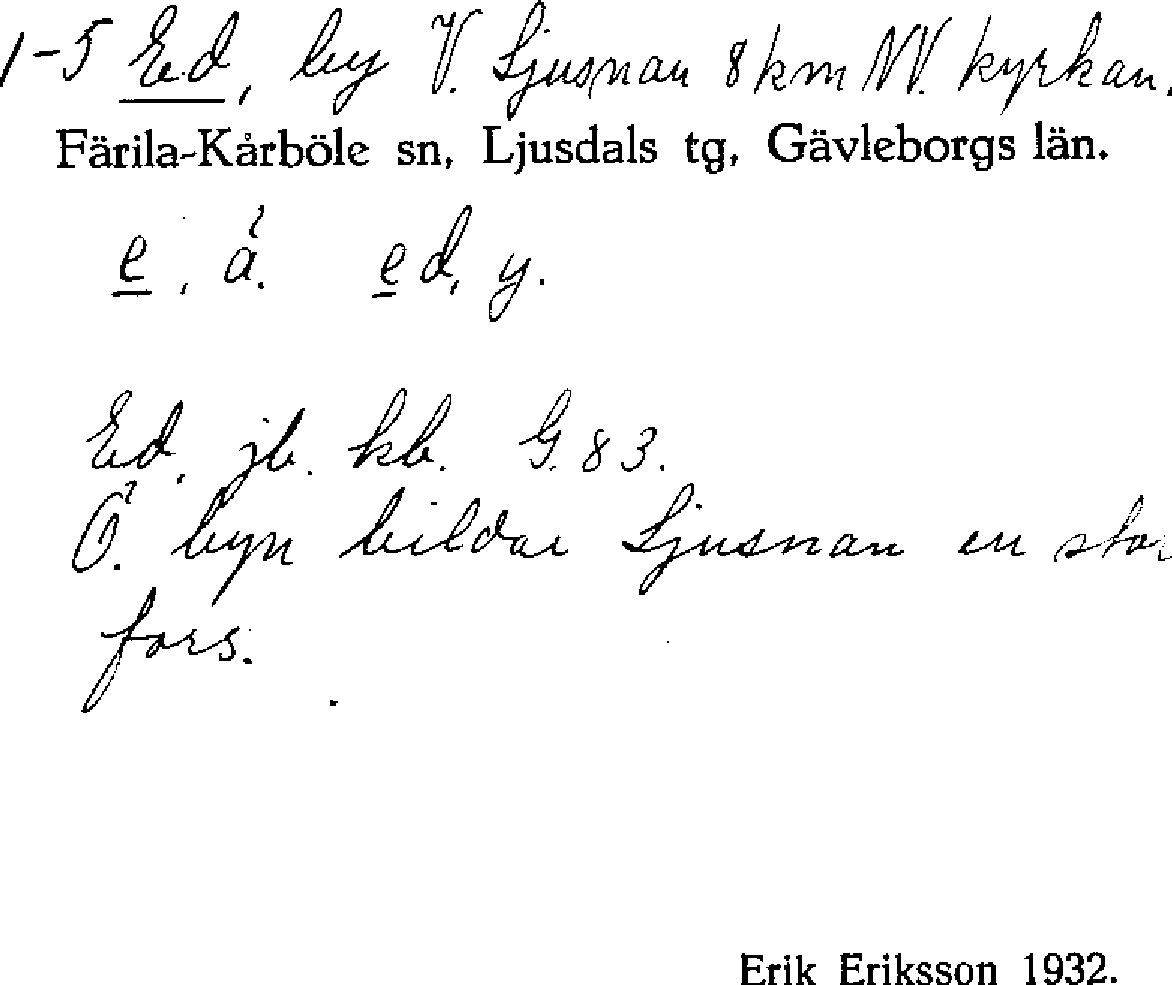 1-5 Ed, by V. Ljusnan 8 km NV. kyrkan.
Färila-Kårböle sn, Ljusdals tg, Gävleborgs län.
e, å. ed, y.
Ed, jb. kb. G. 83.
Ö. byn bildar Ljusnan en stor
fors.
Erik Eriksson 1932.